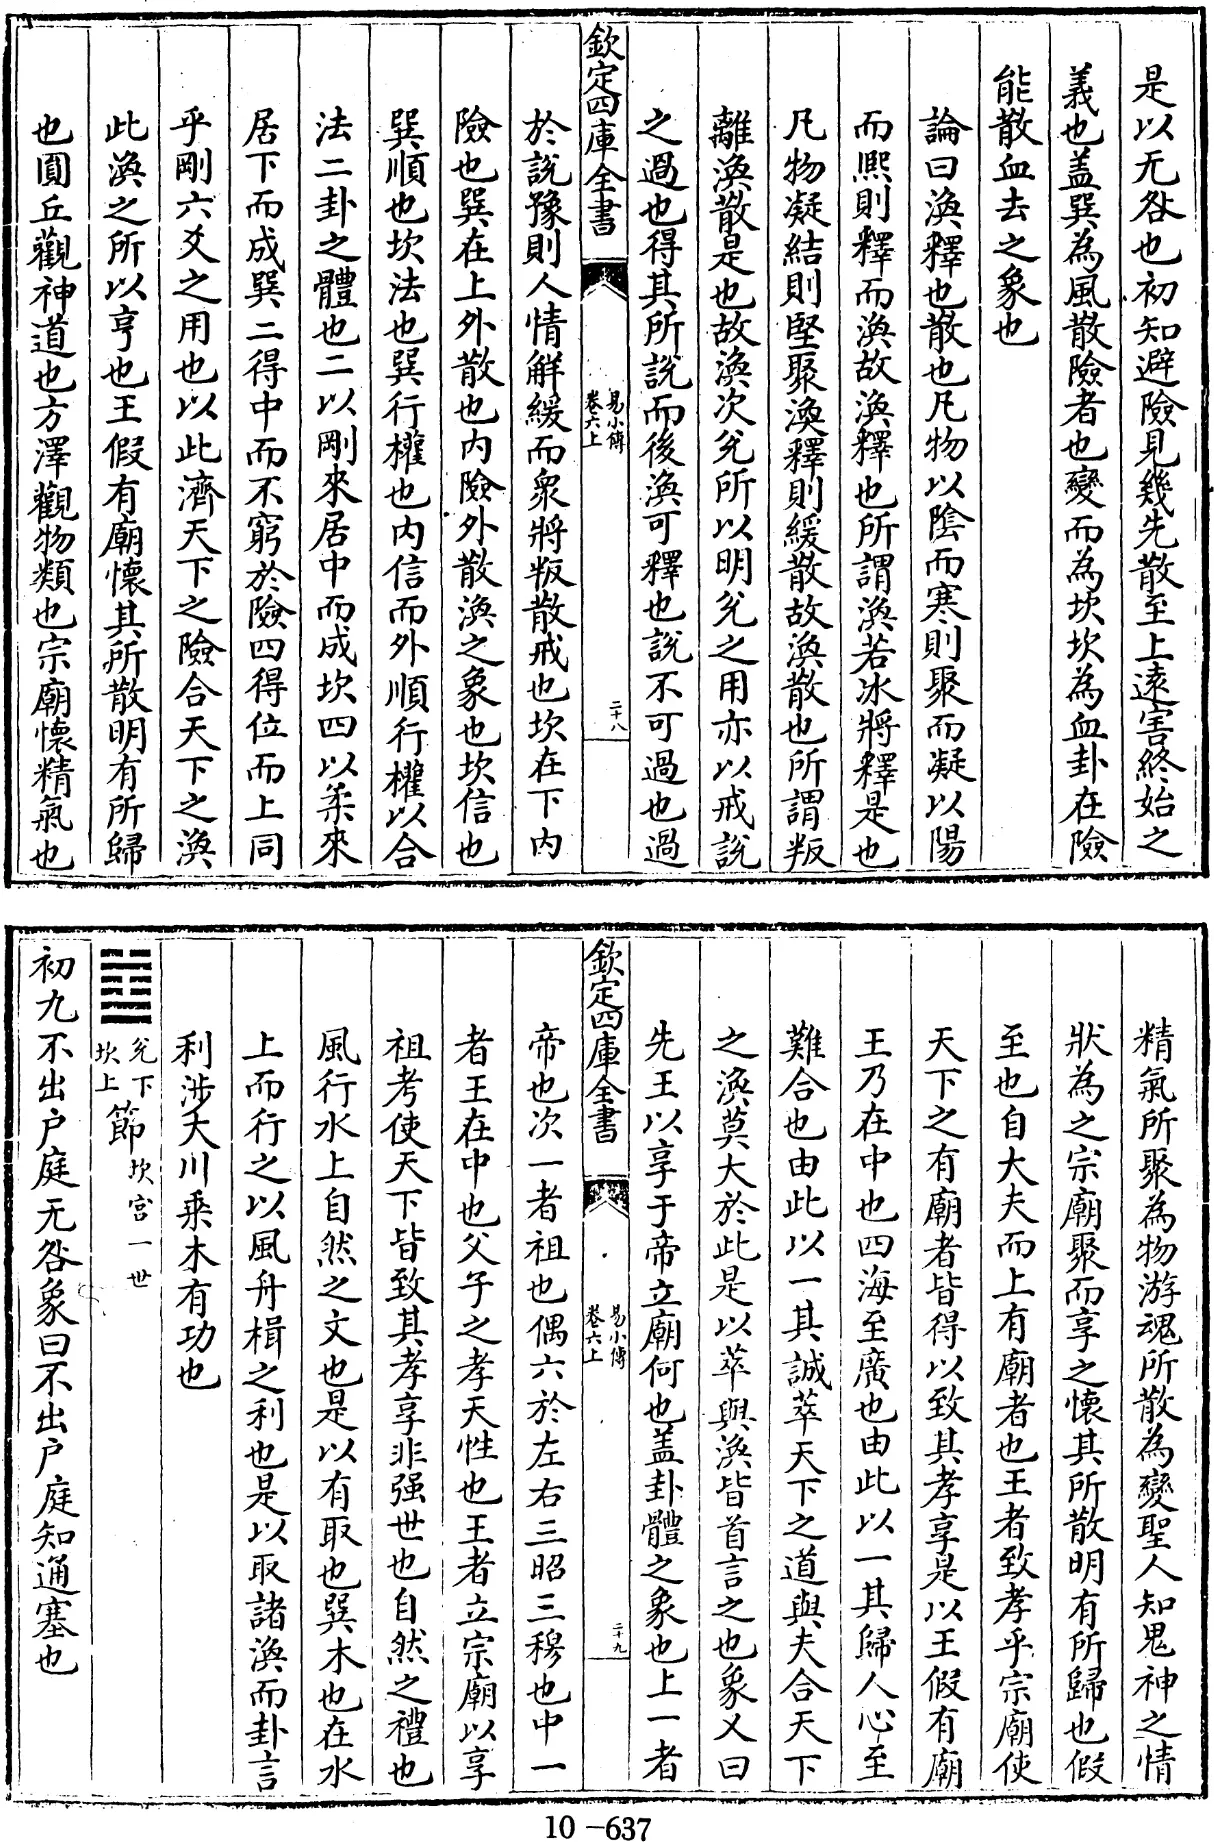 是以无咎也初知避險見幾先散至上遠害終始之
義也盖巽為風散險者也變而為坎坎為血卦在險
能散血去之象也
論曰渙釋也散也凡物以陰而寒則聚而凝以陽
而熈則釋而渙故渙釋也所謂渙若冰將釋是也
凡物凝結則堅聚渙釋則緩散故渙散也所謂判
離渙散是也故渙次兊所以明兊之用亦以戒説
之過也得其所説而後渙可釋也説不可過也過
欽定四庫全書
易小傳
卷六上
二十八
於説豫則人情解緩而衆將叛散戒也坎在下内
險也巽在上外散也内險外散渙之象也坎信也
巽順也坎法也巽行權也内信而外順行權以合
法二卦之體也二以剛來居中而成坎四以柔來
居下而成巽二得中而不窮於險四得位而上同
乎剛六爻之用也以此濟天下之險合天下之渙
此渙之所以亨也王假有廟懷其所散明有所歸
也圓丘觀神道也方澤觀物類也宗廟懷精氣也
精氣所聚為物游魂所散為變聖人知鬼神之情
狀為之宗廟聚而享之懷其所散明有所歸也假
至也自大夫而上有廟者也王者致孝乎宗廟使
天下之有廟者皆得以致其孝享是以王假有廟
王乃在中也四海至廣也由此以一其歸人心至
難合也由此以一其誠萃天下之道與夫合天下
之渙莫大於此是以萃與渙皆首言之也象又曰
先王以享于帝立廟何也盖卦體之象也上一者
欽定四庫全書
易小傳
卷六上
二十九
帝也次一者祖也偶六於左右三昭三穆也中一
者王在中也父子之孝天性也王者立宗廟以享
祖考使天下皆致其孝享非强世也自然之禮也
風行水上自然之文也是以有取也巽木也在水
上而行之以風舟楫之利也是以取諸渙而卦言
利涉大川乘木有功也
兊下
坎上
節坎宫一世
初九不出户庭无咎象曰不出户庭知通塞也
10-637